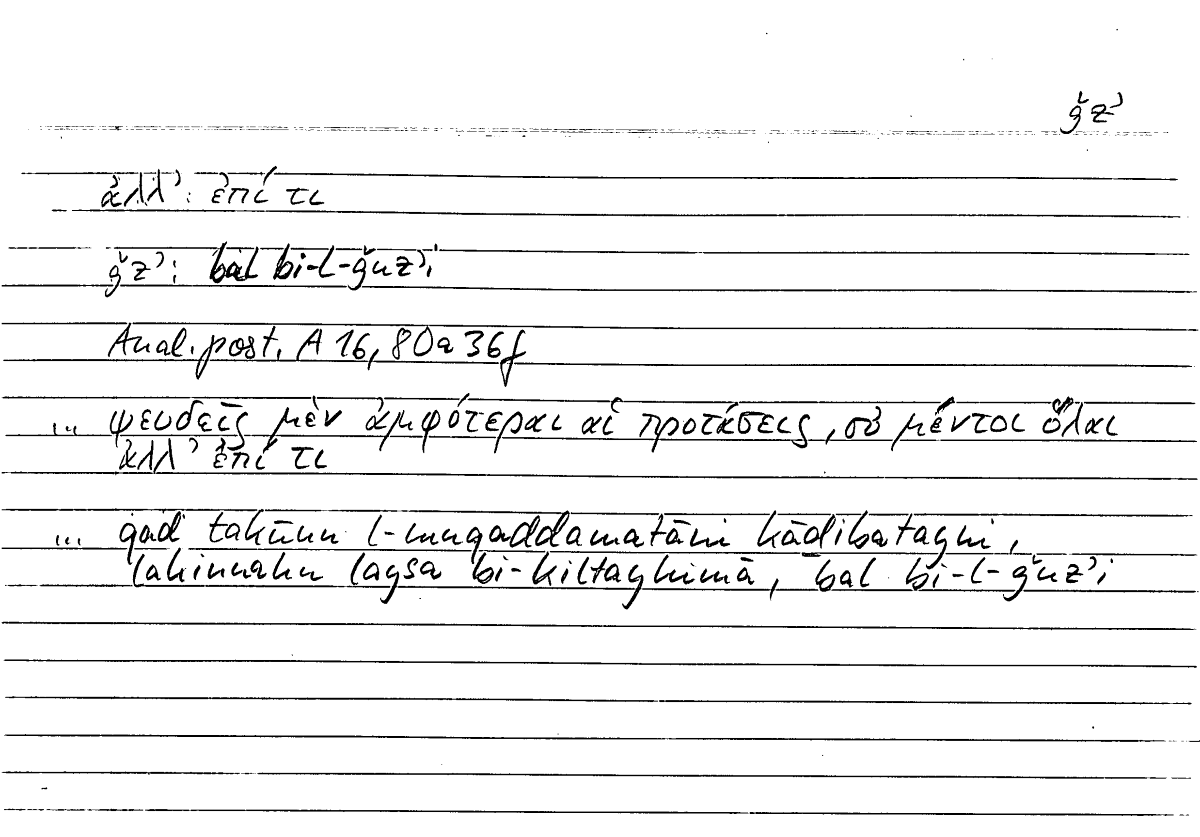 ǧzʾ
ἀλλʾ: ἐπί τι
ǧzʾ: bal bi-l-ǧuzʾi
Anal. post. A 16, 80a 36f
... ψευδεῖς μὲν ἀμφότεραι αἱ προτάσεις, οὐ μέντοι ὅλαι
ἀλλʾ ἐπί τι
... qad takūnu l-muqaddamatāni kāḏibatayni,
lakinnahu laysa bi-kiltayhimā, bal bi-l-ǧuzʾi